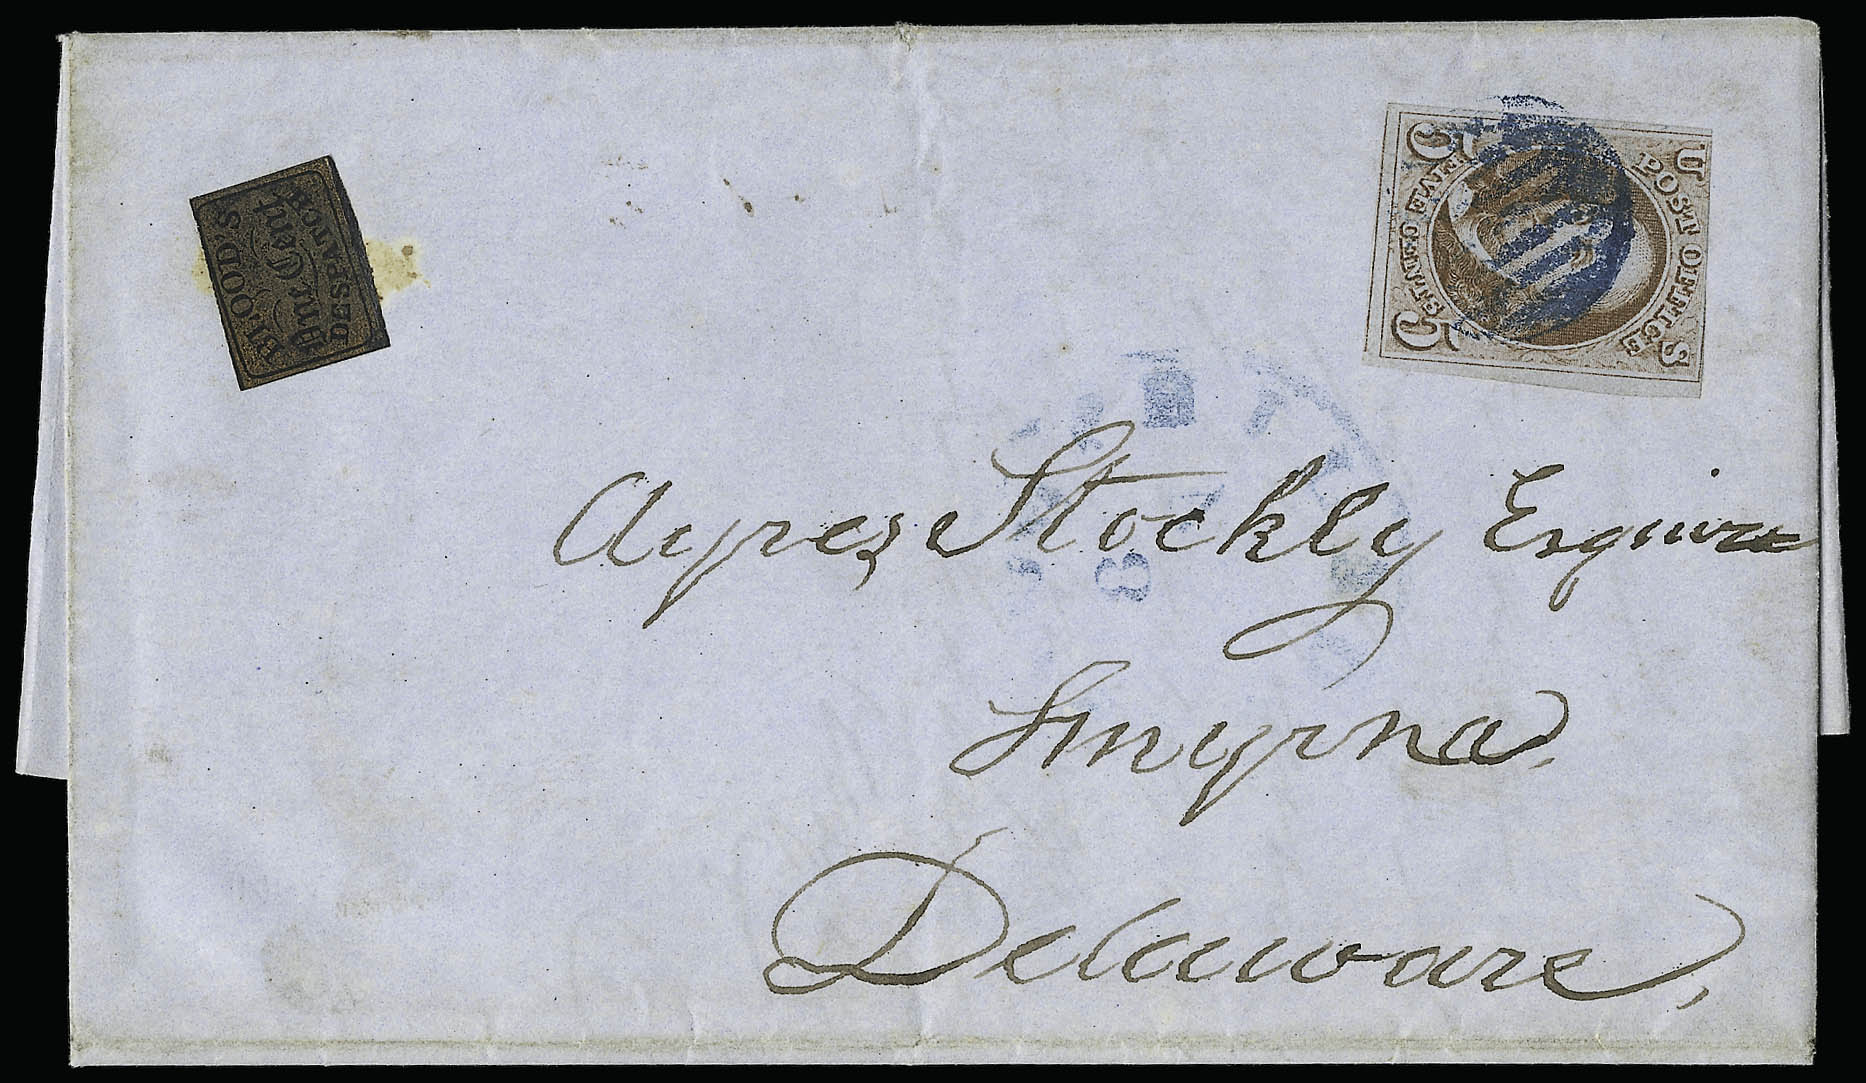 BLOOD'S
One Cent
DESPATCH
U S
POST OFFICE
FIVE CENTS
5 5
Ayres Stockly Esquire
Smyrna
Delaware,